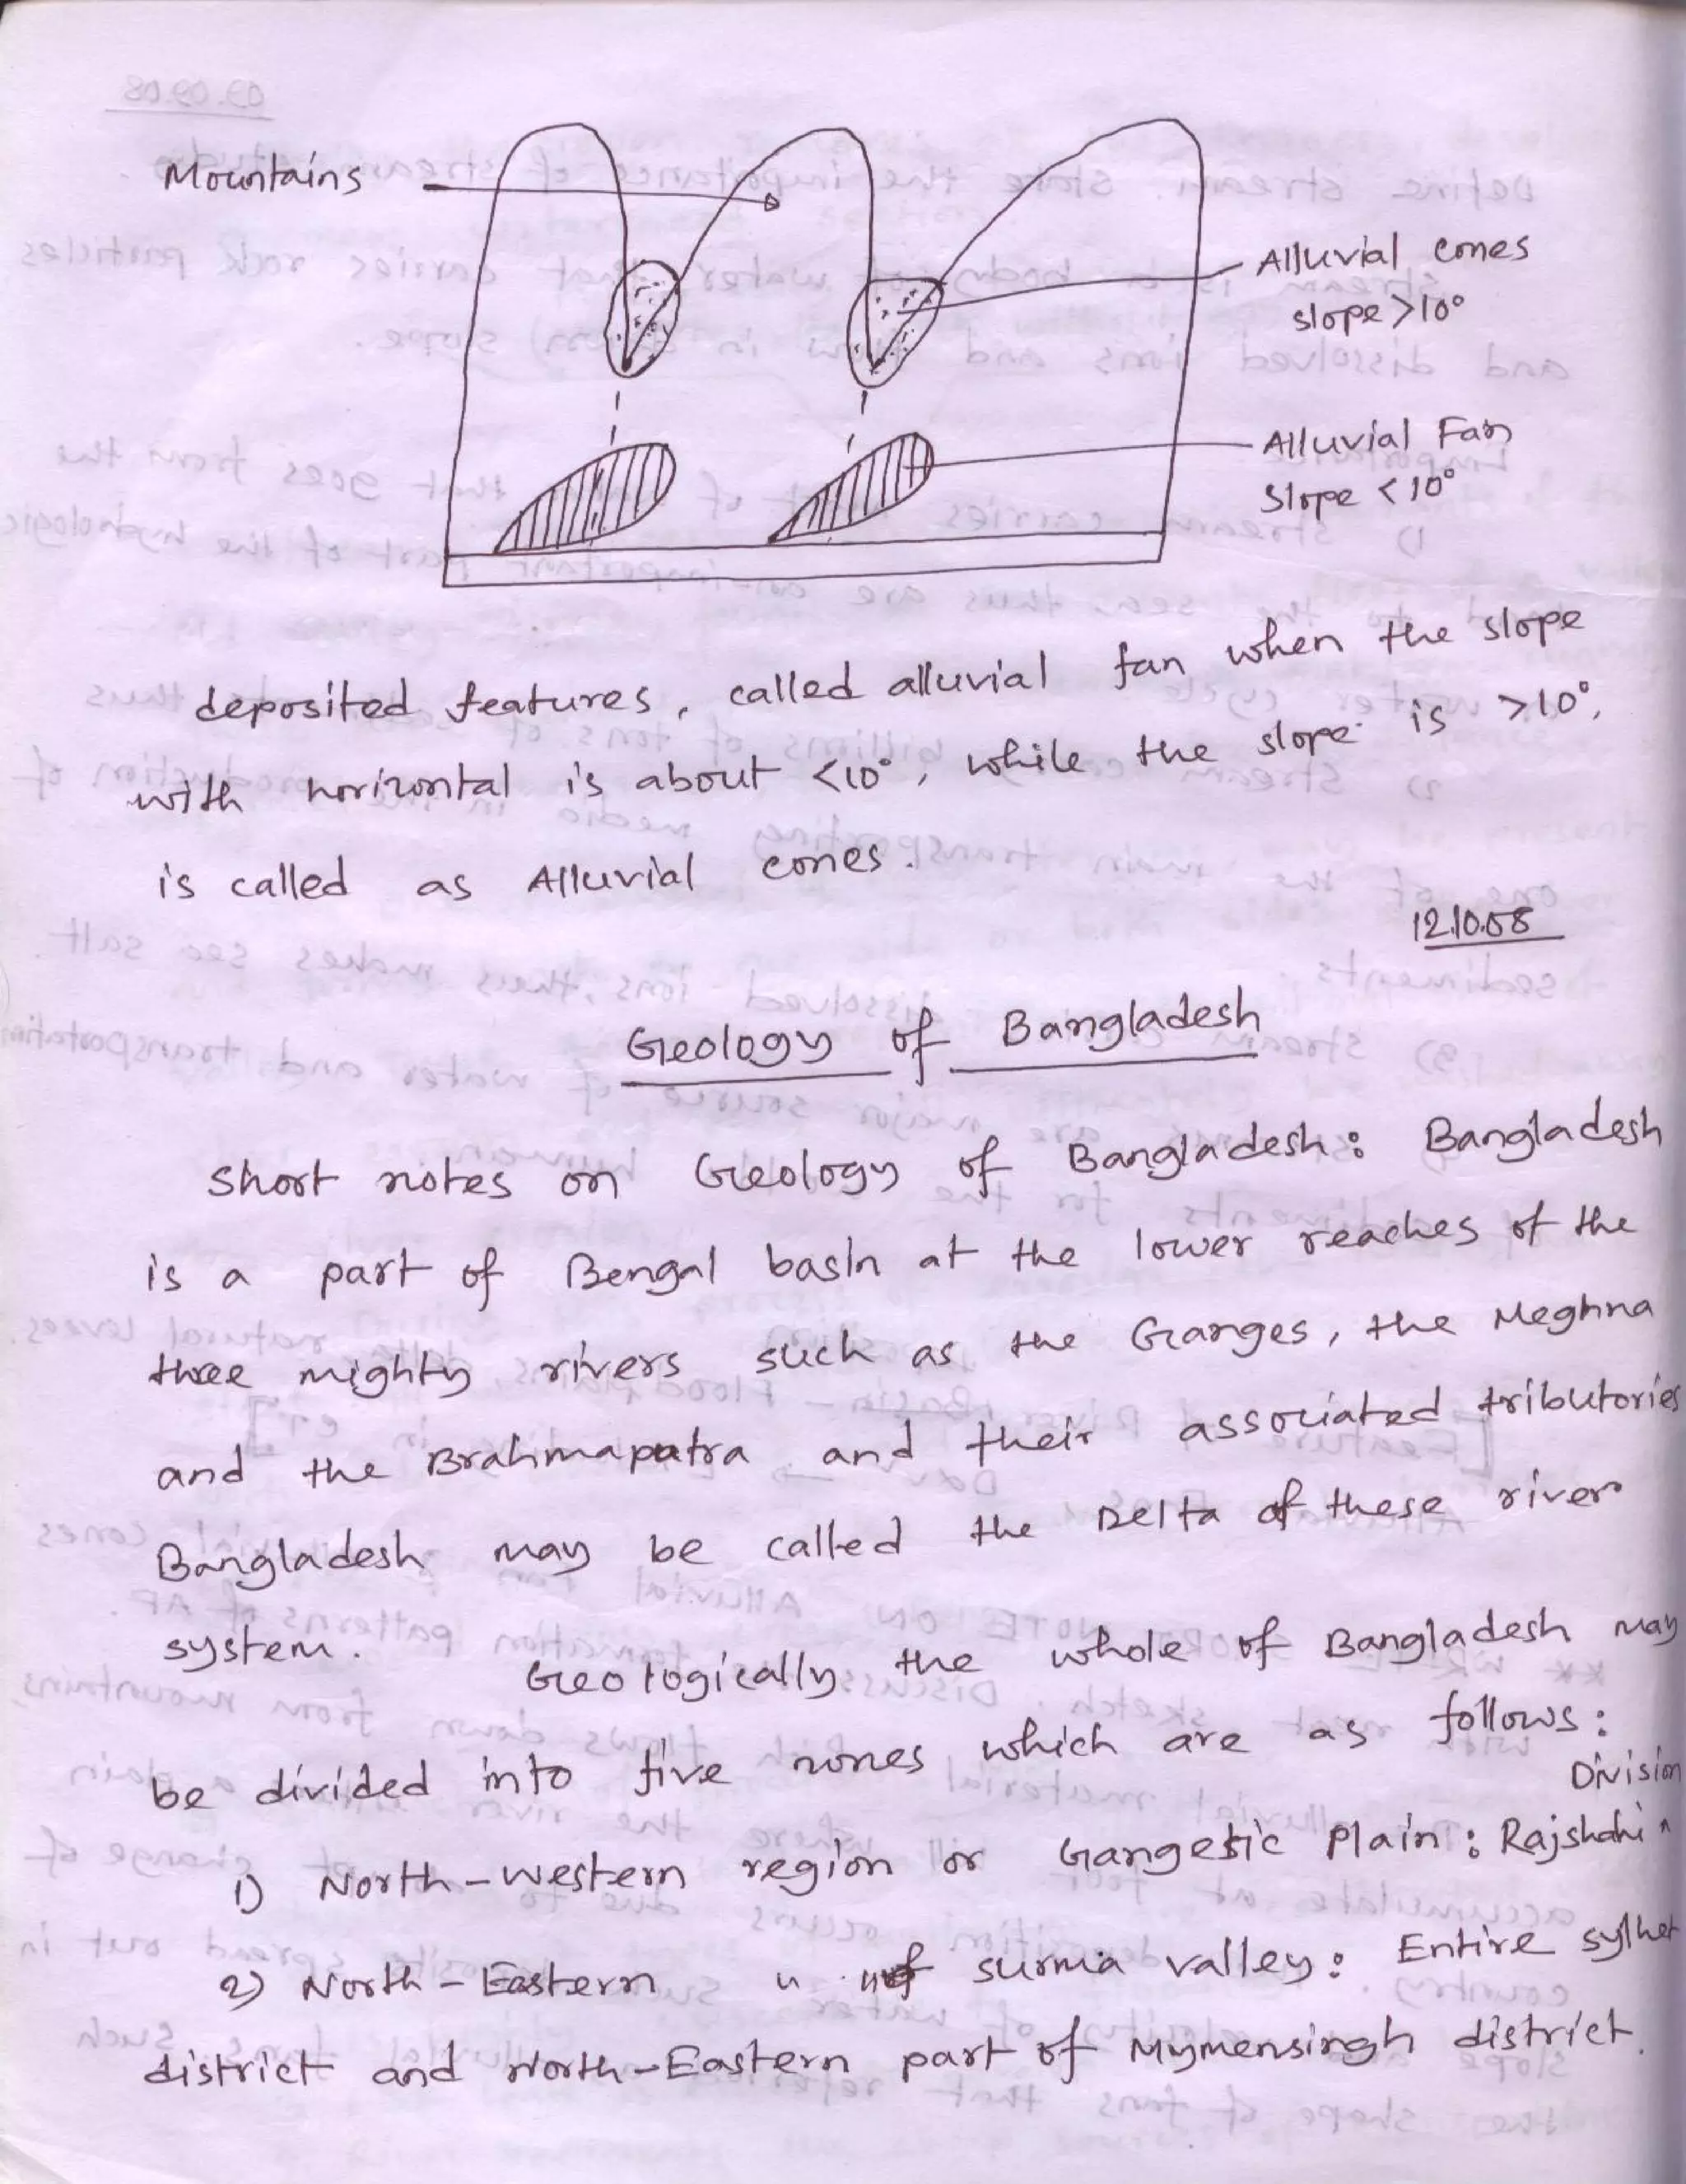 Mountains
Alluvial cones
slope >10°
Alluvial Fan
Slope <10°
deposited features, called alluvial fan when the slope
with horizontal is about <10°, while the slope is >10°,
is called as Alluvial cones.
12.10.08
Geology of Bangladesh
Short notes on Geology of Bangladesh: Bangladesh
is a part of Bengal basin at the lower reaches of the
three mighty rivers such as the Ganges, the Meghna
and the Brahmaputra and their associated tributories
Bangladesh may be called the Delta of these river
system.
Geologically the whole of Bangladesh may
be divided into five zones which are as follows:
Division
1) North-western region or Gangetic Plain: Rajshahi ^
2) North-Eastern " " of surma valley: Entire sylhet
district and North-Eastern part of Mymensingh district.